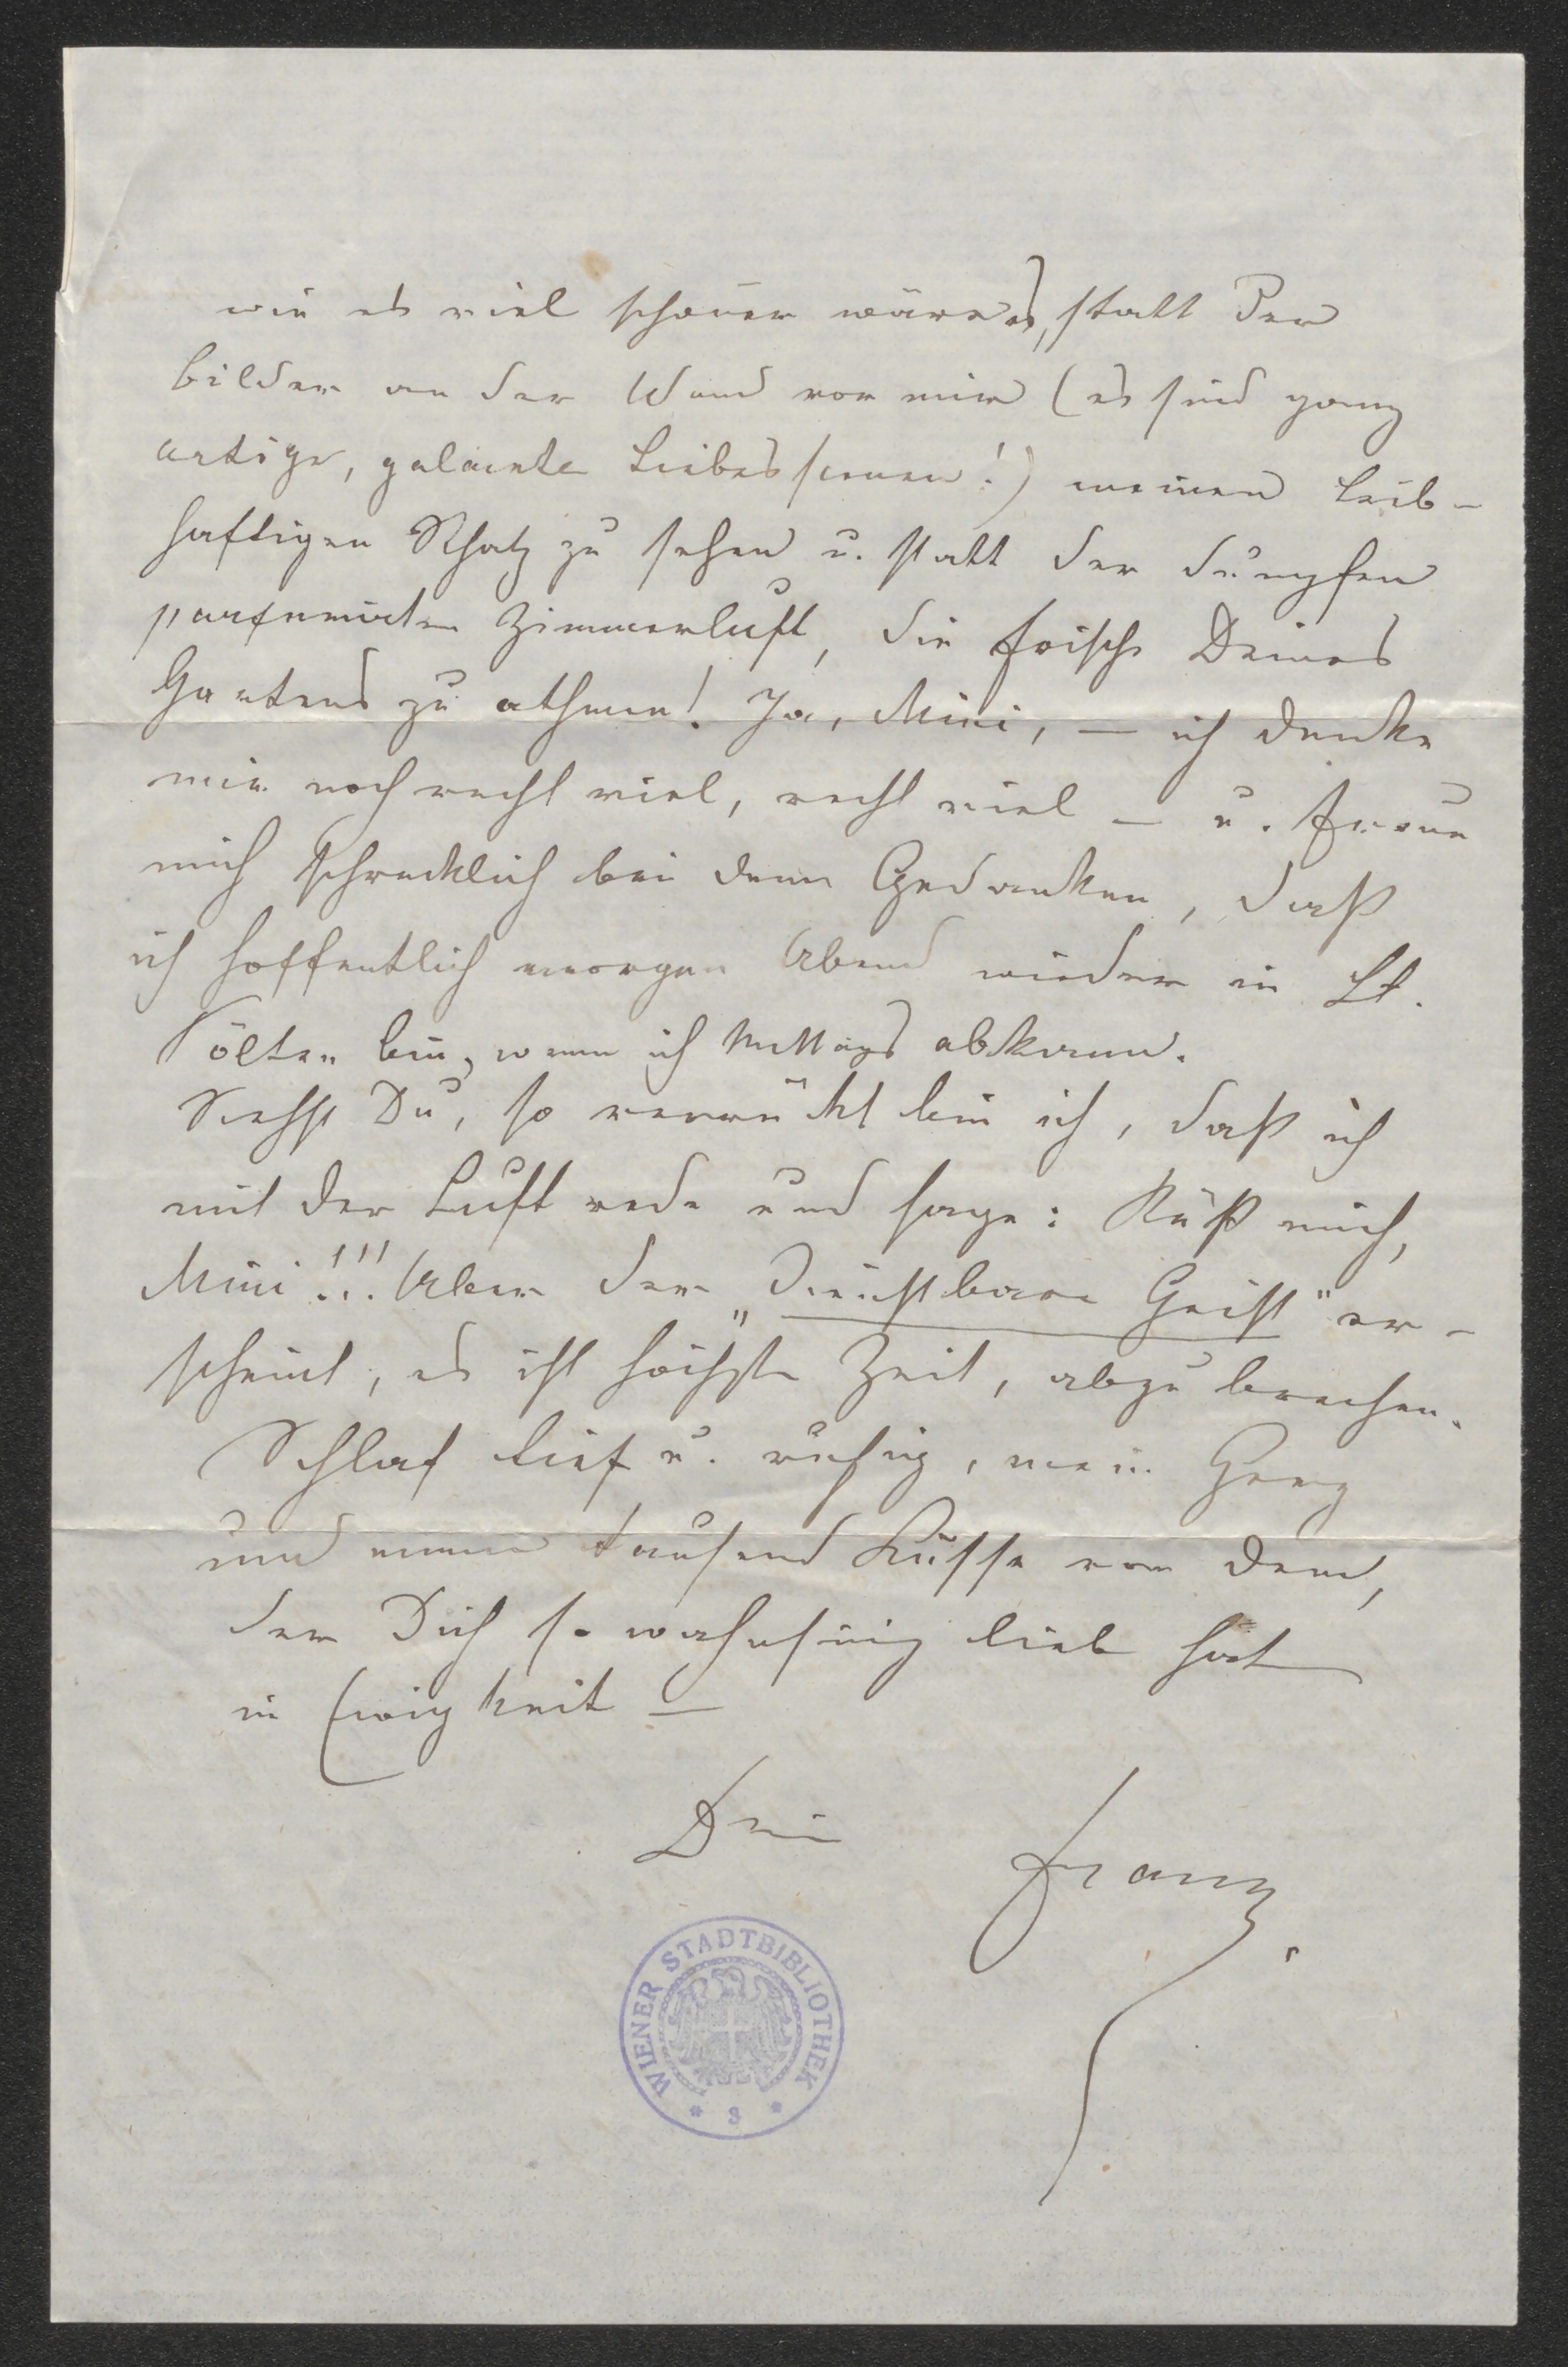 wie es viel schöner wäre, statt der
Bilder an der Wand vor mir (es sind ganz
artige, galante Liebesscenen!) meinen leib-
haftigen Schatz zu sehen u. statt der dumpfen
parfumirten Zimmerluft, die frische Deines
Gartens zu athmen! Ja, Mini, — ich denke
mir noch recht viel, recht viel — u. freue
mich schrecklich bei dem Gedanken, daß
ich hoffentlich morgen Abend wieder in St.
Pölten bin, wenn ich Mittags abkann.
Siehst Du, so verrückt bin ich, daß ich
mit der Luft rede und sage: Küß mich,
Mini!!! Aber der „dienstbare Geist" er-
scheint, es ist höchste Zeit, abzubrechen.
Schlaf tief u. ruhig, mein Herz
und nimm tausend Küsse von dem,
der Dich so wahnsinnig lieb hat
in Ewigkeit —
Dein Franz.
WIENER STADTBIBLIOTHEK
* 3 *